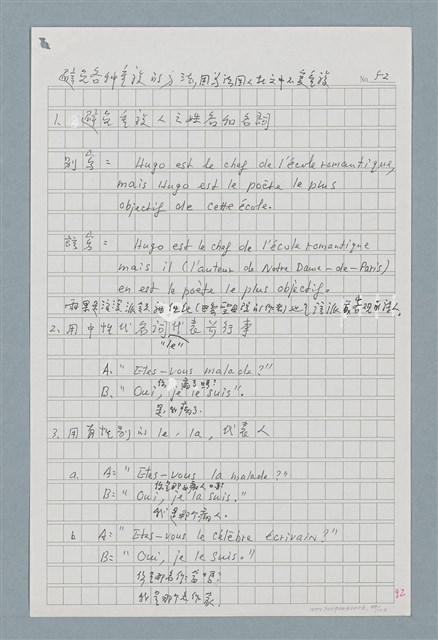 避免各种重複的方法,用 No. 52
1. 避免重複人之姓名和名詞
別寫= Hugo est le chef de l'école romantique,
mais Hugo est le poète le plus
objectif de cette école.
該寫= Hugo est le chef de l'école romantique
mais il (l'auteur de Notre Dame-de-Paris)
en est le poète le plus objectif.
雨果是浪漫派
2. 用中性代名詞代表
"le"
A. "Etes-vous malade?"
你病了嗎?
B. "Oui, je le suis".
是,我病了.
3. 用有性別的 le, la, 代表人
a. A= "Etes-vous la malade?"
你是那病人嗎?
B= "Oui, je la suis."
我是那个病人.
b A= "Etes-vous le célèbre écrivain?"
B= "Oui, je le suis."
你是那名作家嗎?
我是那个名作家.
92